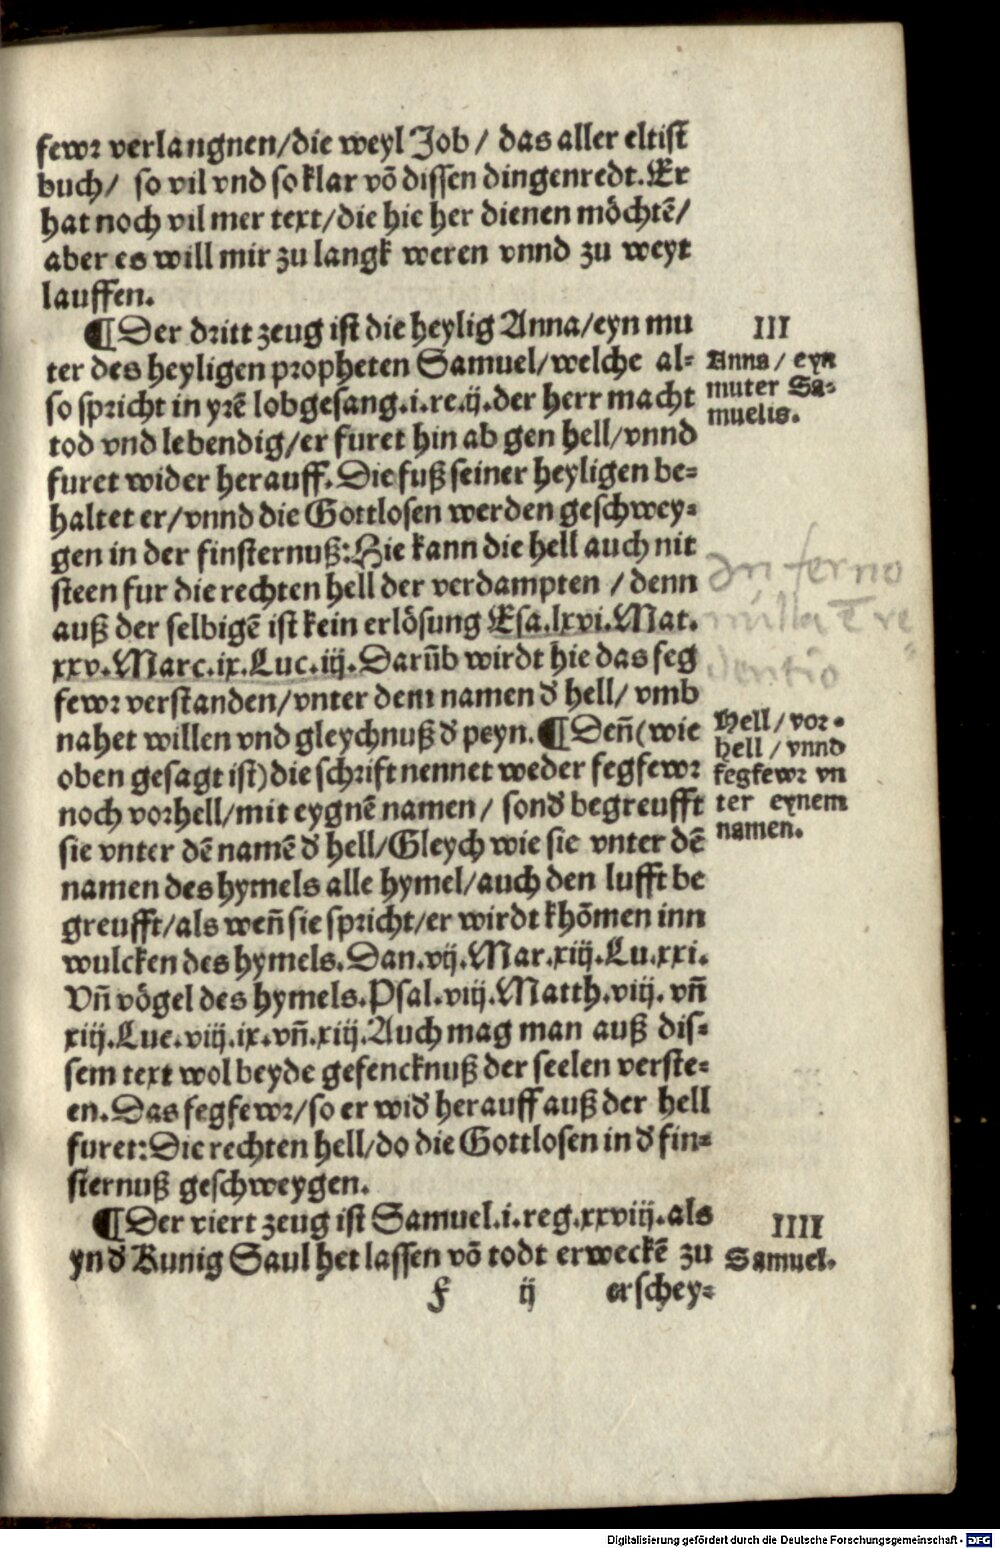 fewr verlangnen/die weyl Job/ das aller eltist
buch/ so vil vnd so klar võ dissen dingen redt. Er
hat noch vil mer text/die hie her dienen möchtẽ/
aber es will mir zu langk weren vnnd zu weyt
lauffen.
¶ Der dritt zeug ist die heylig Anna/eyn mu
ter des heyligen propheten Samuel/welche al-
so spricht in yrẽ lobgesang.i.re.ij.der herr macht
tod vnd lebendig/er furet hin ab gen hell/vnnd
furet wider herauff. Die fuß seiner heyligen be-
haltet er/vnnd die Gottlosen werden geschwey-
gen in der finsternuß: Hie kann die hell auch nit
steen fur die rechten hell der verdampten /denn
auß der selbigẽ ist kein erlösung Esa.lxvi.Mat.
xxv.Marc.ix.Luc.iij. Darũb wirdt hie das feg
fewr verstanden/vnter dem namen ď hell/ vmb
nahet willen vnd gleychnuß ď peyn. ¶ Deñ (wie
oben gesagt ist) die schrift nennet weder fegfewr
noch vorhell/mit eygnẽ namen/ sonď begreufft
sie vnter dẽ namẽ ď hell/Gleych wie sie vnter dẽ
namen des hymels alle hymel/auch den lufft be
greufft/als weñ sie spricht/er wirdt khõmen inn
wulcken des hymels. Dan.vij.Mar.xiij.Lu.xxi.
Vñ vögel des hymels. Psal.viij.Matth.viij. vñ
xiij.Luc.viij.ix.vñ.xiij. Auch mag man auß dis-
sem text wol beyde gefencknuß der seelen verste-
en. Das fegfewr/so er wiď herauff auß der hell
furet: Die rechten hell/do die Gottlosen in ď fin-
sternuß geschweygen.
¶ Der viert zeug ist Samuel.i.reg.xxviij.als
ynď Kunig Saul het lassen võ todt erweckẽ zu
f ij erschey-
III
Anna/ eyn
muter Sa-
muelis.
In ferno
nulla ẽ re
dentio
Hell/vor-
hell/vnnd
fegfewr vn
ter eynem
namen.
IIII
Samuel.
Digitalisierung gefördert durch die Deutsche Forschungsgemeinschaft - DFG